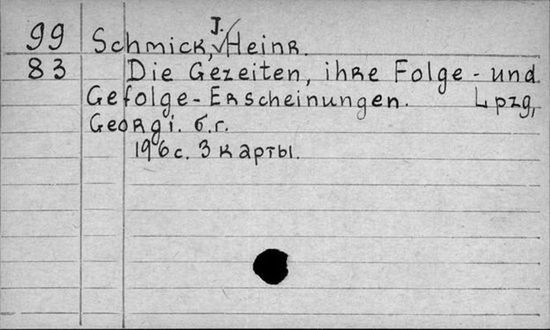 99 Schmick, J. Heinr.
83 Die Gezeiten, ihre Folge- und
Gefolge-Erscheinungen. Lpzg,
Georgi. б.г.
196 с. 3 карты.